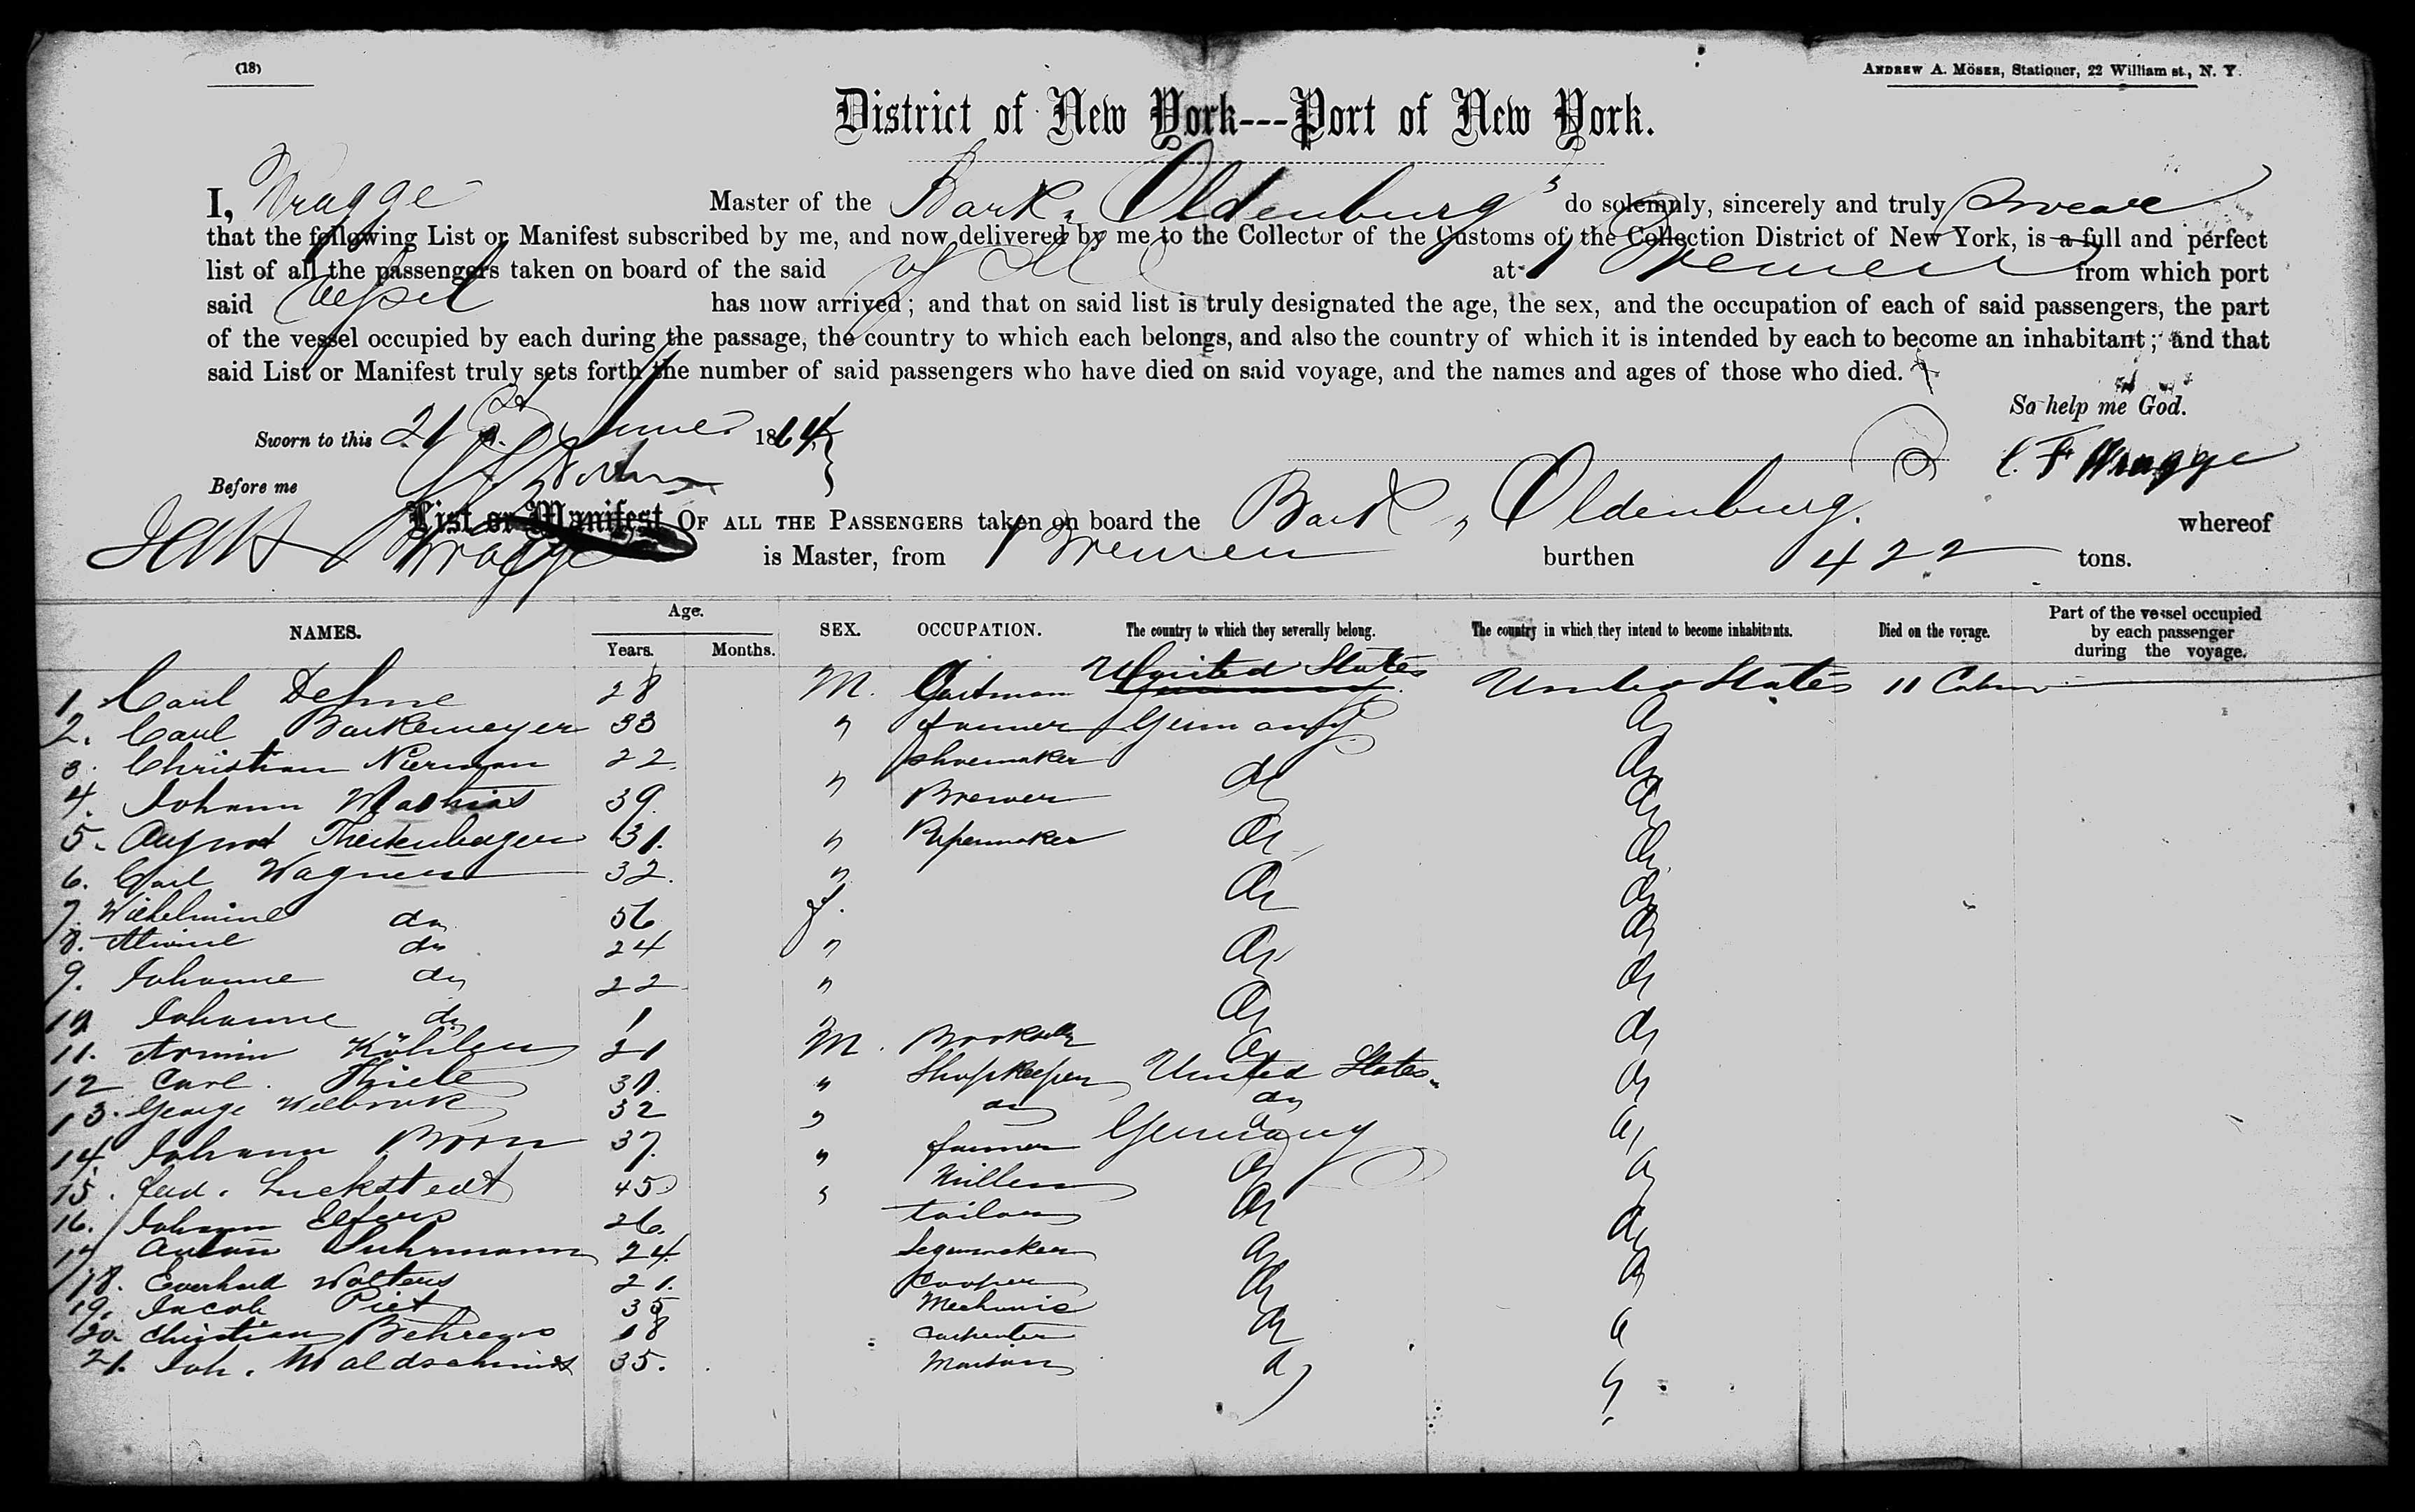 (18)
ANDREW A. MÖSER, Stationer, 22 William st., N. Y.
District of New York---Port of New York.
I, Wragge Master of the Bark „Oldenburg" do solemnly, sincerely and truly swear
that the following List or Manifest subscribed by me, and now delivered by me to the Collector of the Customs of the Collection District of New York, is a full and perfect
list of all the passengers taken on board of the said at Bremen from which port
said Vessel has now arrived; and that on said list is truly designated the age, the sex, and the occupation of each of said passengers, the part
of the vessel occupied by each during the passage, the country to which each belongs, and also the country of which it is intended by each to become an inhabitant; and that
said List or Manifest truly sets forth the number of said passengers who have died on said voyage, and the names and ages of those who died.
So help me God.
Sworn to this 21st June 1864
C. F. Wragge
Before me
List or Manifest OF ALL THE PASSENGERS taken on board the Bark „Oldenburg. whereof
Wragge is Master, from Bremen burthen 422 tons.
NAMES. Age. Years. Months. SEX. OCCUPATION. The country to which they severally belong. The country in which they intend to become inhabitants. Died on the voyage. Part of the vessel occupied by each passenger during the voyage.
1. Carl Dehne 28 M. United States United States 11 Cabin
2. Carl Barkemeyer 33 " farmer Germany do
3. Christian Nierman 22. shoemaker do
4. Johann Mathias 39. " Brewer do do
5. August 31. " Papermaker do do
6. Carl Wagner 32. " do do
7. Wilhelmine do 56 f. do
8. Alwine do 24 " do do
9. Johanne do 22 " do do
10 Johanne do 1 " do
11. Armin Köhler 21 M. do
12 Carl Thiele 31. " Shopkeeper United States. do
13. George Welbrock 32 " do do do
14. Johann Born 37. " farmer Germany do
15. Luckstedt 45 " Miller do
16. Johann Elfers 26. tailor do do
17 Anton Suhrmann 24. Segarmaker do do
18. Everhard Wolters 21. Cooper do
19. Jacob Piet 35 Mechanic do
20. Christian Behrens 18 Carpenter
21. Joh. Waldschmidt 35.